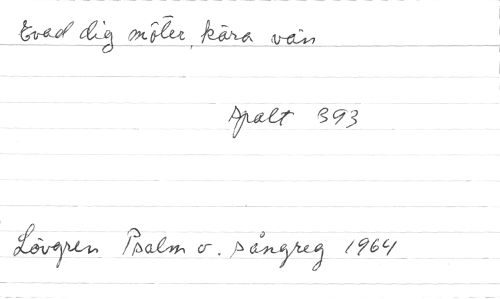 Evad dig möter, kära vän
Apalt 393
Lövgren Psalm o. sångreg 1964